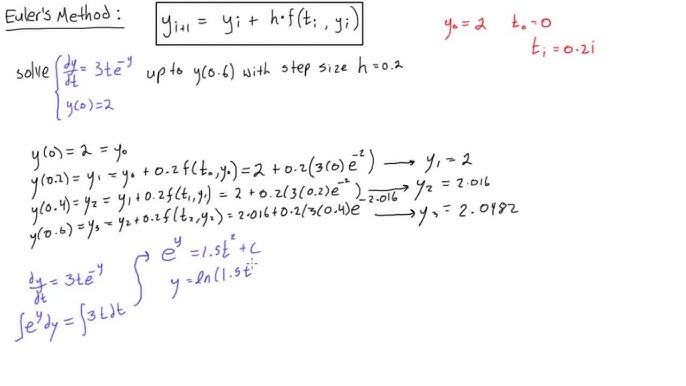 Euler's Method:
y_{i+1} = y_i + h·f(t_i, y_i)
y_0 = 2 t_0 = 0
t_i = 0.2i
solve { dy/dt = 3te^{-y} up to y(0.6) with step size h = 0.2
y(0) = 2
y(0) = 2 = y_0
y(0.2) = y_1 = y_0 + 0.2f(t_0, y_0) = 2 + 0.2(3(0)e^{-2}) → y_1 = 2
y(0.4) = y_2 = y_1 + 0.2f(t_1, y_1) = 2 + 0.2(3(0.2)e^{-2}) → y_2 = 2.016
y(0.6) = y_3 = y_2 + 0.2f(t_2, y_2) = 2.016 + 0.2(3(0.4)e^{-2.016} → y_3 = 2.0482
dy/dt = 3te^{-y}
∫e^y dy = ∫3t dt
e^y = 1.5t^2 + c
y = ln(1.5t